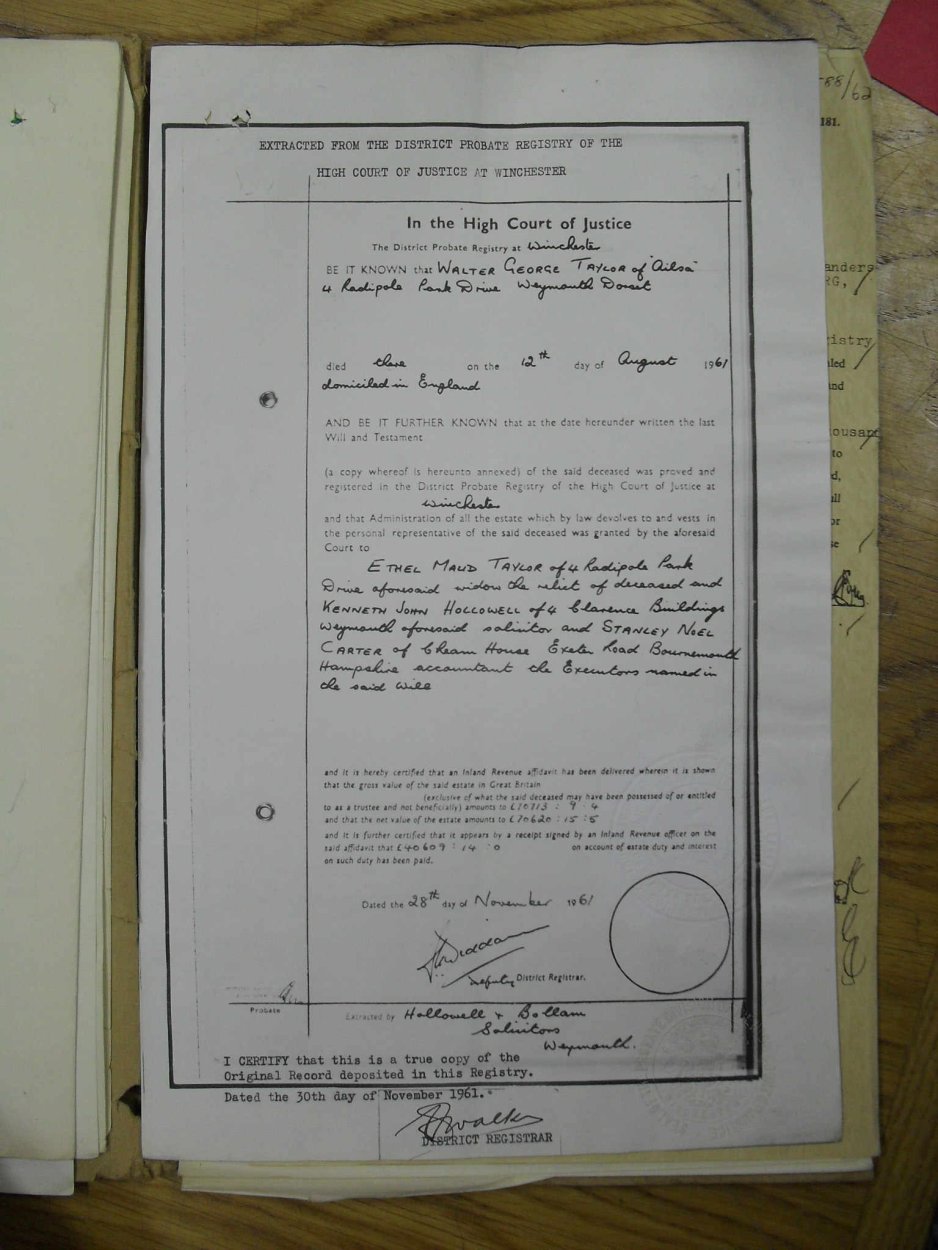 EXTRACTED FROM THE DISTRICT PROBATE REGISTRY OF THE
HIGH COURT OF JUSTICE AT WINCHESTER
In the High Court of Justice
The District Probate Registry at Winchester
BE IT KNOWN that WALTER GEORGE TAYLOR of "Ailsa"
4 Radipole Park Drive Weymouth Dorset
died there on the 12th day of August 1961
domiciled in England
AND BE IT FURTHER KNOWN that at the date hereunder written the last
Will and Testament
(a copy whereof is hereunto annexed) of the said deceased was proved and
registered in the District Probate Registry of the High Court of Justice at
Winchester
and that Administration of all the estate which by law devolves to and vests in
the personal representative of the said deceased was granted by the aforesaid
Court to
ETHEL MAUD TAYLOR of 4 Radipole Park
Drive aforesaid widow the relict of deceased and
KENNETH JOHN HOLLOWELL of 4 Clarence Buildings
Weymouth aforesaid solicitor and STANLEY NOEL
CARTER of Cheam House Exeter Road Bournemouth
Hampshire accountant the Executors named in
the said Will
and it is hereby certified that an Inland Revenue affidavit has been delivered wherein it is shown
that the gross value of the said estate in Great Britain
(exclusive of what the said deceased may have been possessed of or entitled
to as a trustee and not beneficially) amounts to £70713 : 9 : 4
and that the net value of the estate amounts to £70620 : 15 : 5
and it is further certified that it appears by a receipt signed by an Inland Revenue officer on the
said affidavit that £40609 : 14 : 0 on account of estate duty and interest
on such duty has been paid.
Dated the 28th day of November 1961
Deputy District Registrar.
Probate
Extracted by Hollowell & Bollam
Solicitors
Weymouth.
I CERTIFY that this is a true copy of the
Original Record deposited in this Registry.
Dated the 30th day of November 1961.
DISTRICT REGISTRAR
88/62
181.
anders
RG,
istry
led
and
ousand
to
d,
all
or
se